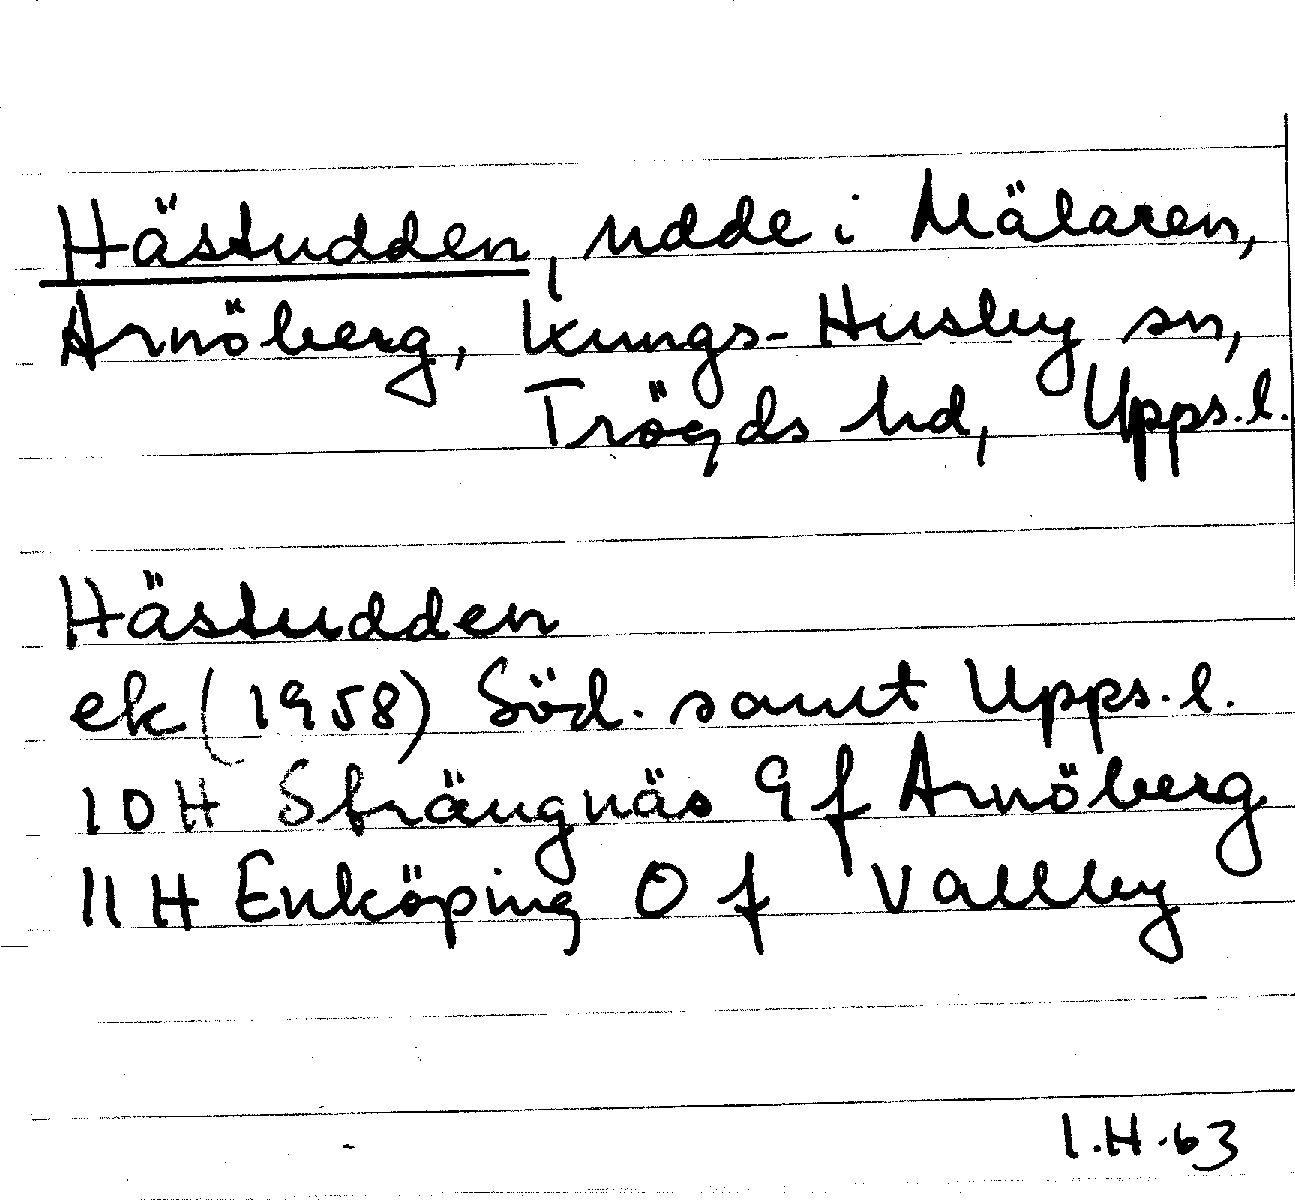 Hästudden, udde i Mälaren,
Arnöberg, Kungs-Husby sn,
Trögds hd, Upps.l.
Hästudden
ek (1958) Söd. samt Upps.l.
10H Strängnäs 9f Arnöberg
11H Enköping 0f Vallby
I.H.63